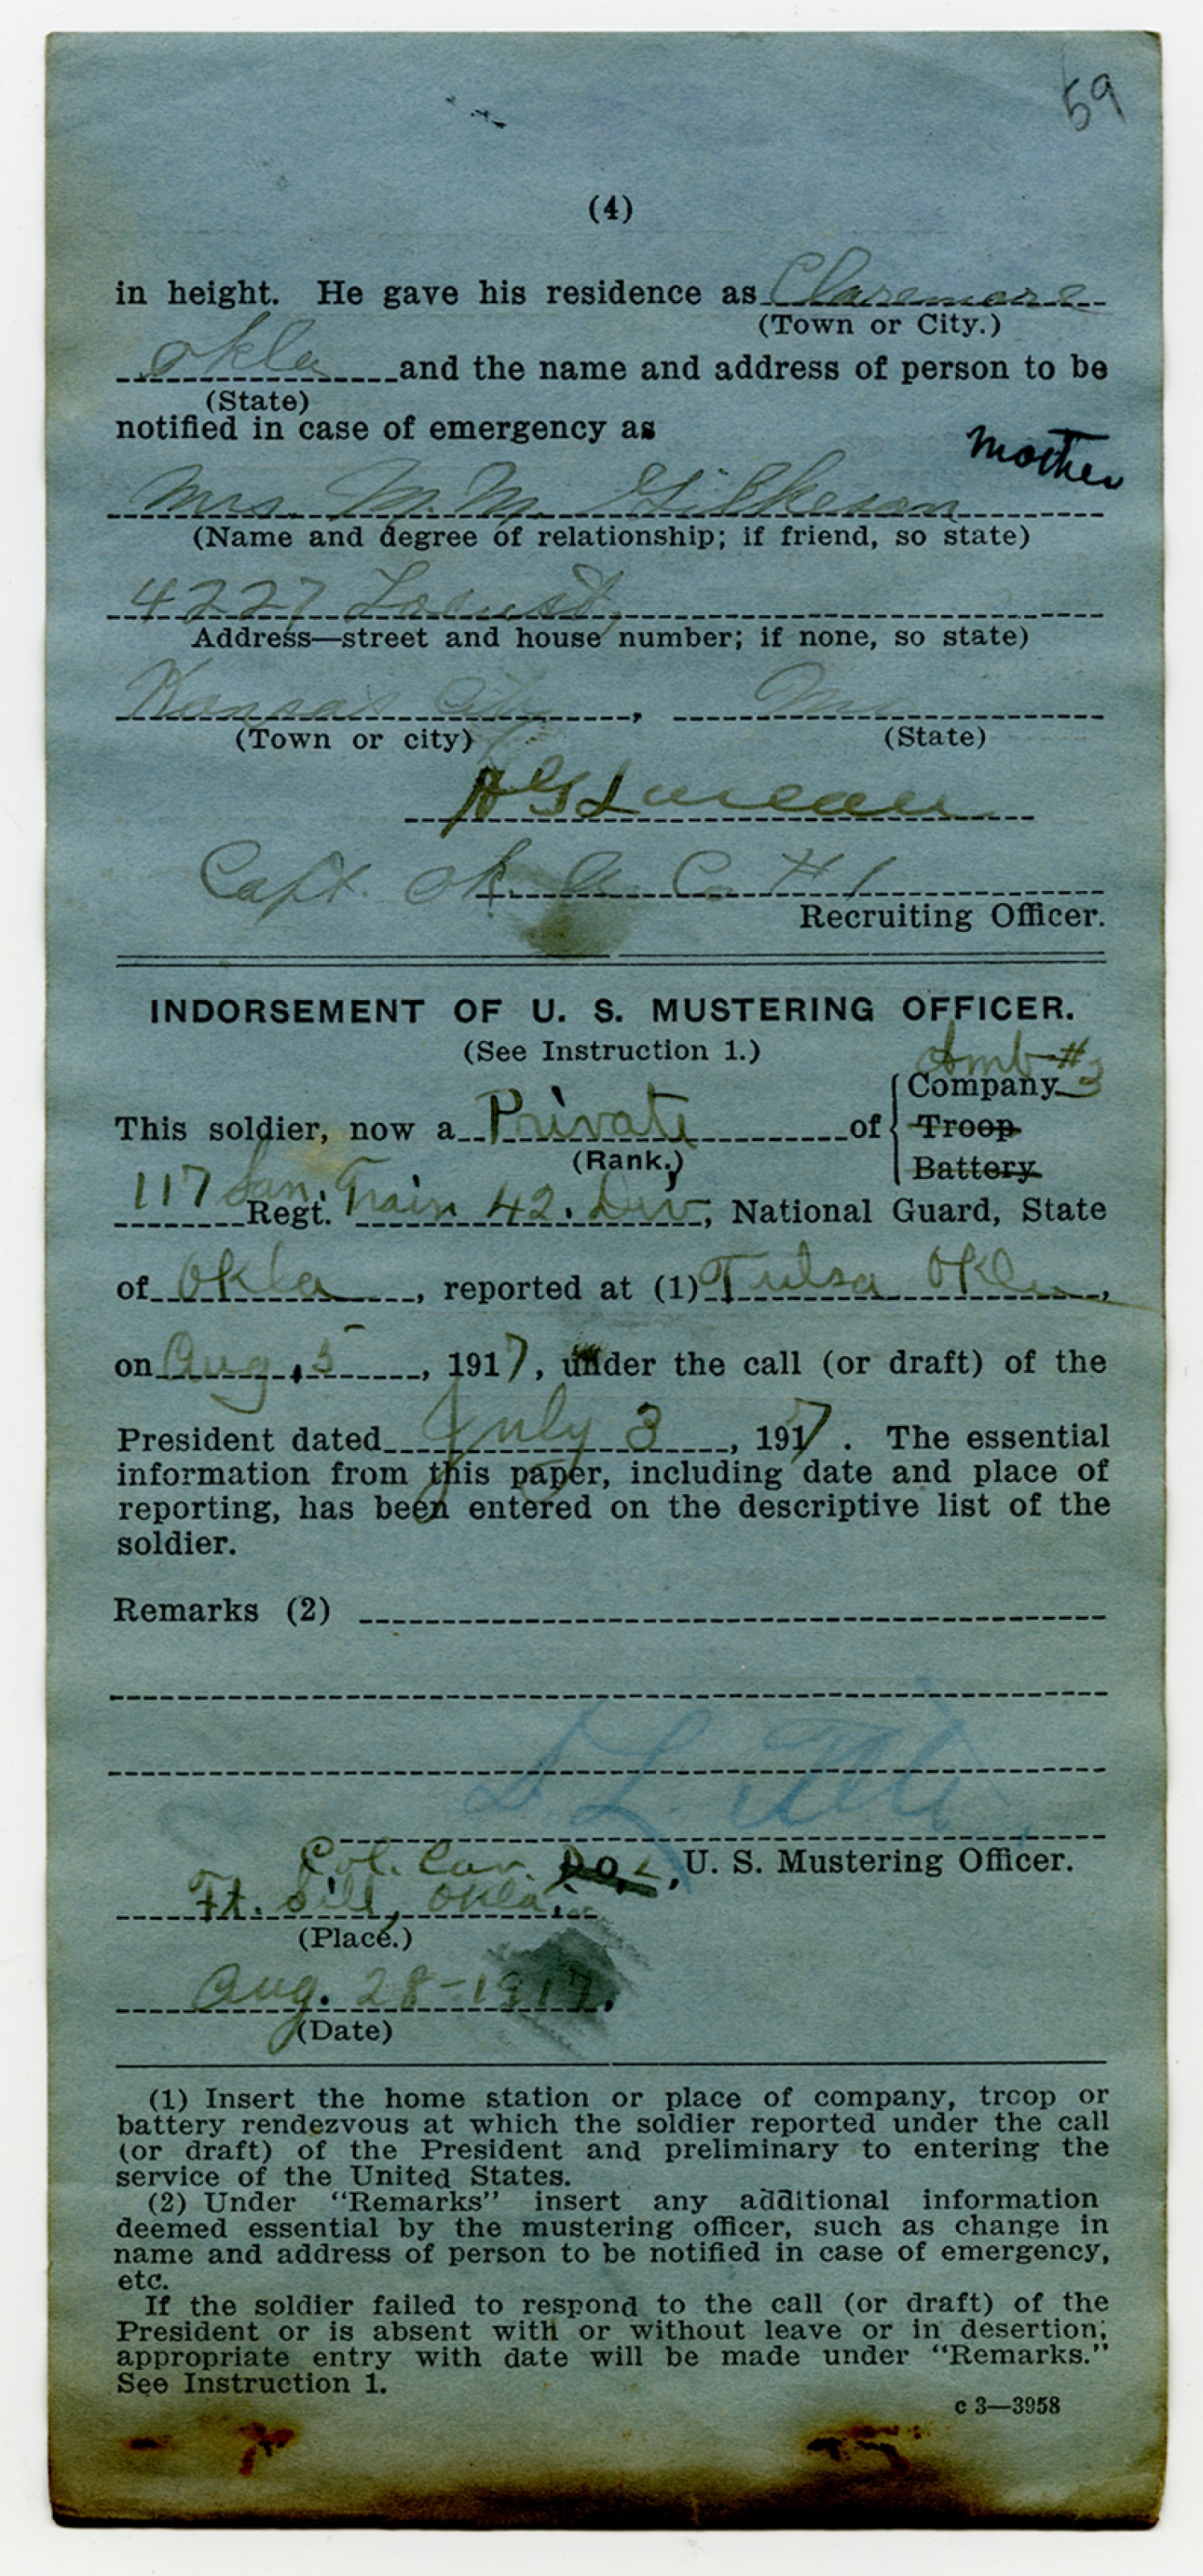 59
(4)
in height. He gave his residence as Claremore
(Town or City.)
Okla and the name and address of person to be
(State)
notified in case of emergency as
Mother
Mrs. M. M. Gilkeson
(Name and degree of relationship; if friend, so state)
4227 Locust,
Address—street and house number; if none, so state)
Kansas City, Mo
(Town or city) (State)
Capt. Ok. A. Co #1
Recruiting Officer.
INDORSEMENT OF U. S. MUSTERING OFFICER.
(See Instruction 1.)
Amb #3
Company
This soldier, now a Private of Troop
(Rank.) Battery
117 San. Train 42. Div
Regt. , National Guard, State
of Okla , reported at (1) Tulsa Okla ,
on Aug. 5 , 1917, under the call (or draft) of the
President dated July 3 , 1917. The essential
information from this paper, including date and place of
reporting, has been entered on the descriptive list of the
soldier.
Remarks (2)
Col. Cav. , U. S. Mustering Officer.
Ft. Sill, Okla.
(Place.)
Aug. 28-1917.
(Date)
(1) Insert the home station or place of company, troop or
battery rendezvous at which the soldier reported under the call
(or draft) of the President and preliminary to entering the
service of the United States.
(2) Under “Remarks” insert any additional information
deemed essential by the mustering officer, such as change in
name and address of person to be notified in case of emergency,
etc.
If the soldier failed to respond to the call (or draft) of the
President or is absent with or without leave or in desertion;
appropriate entry with date will be made under “Remarks.”
See Instruction 1.
c 3—3958